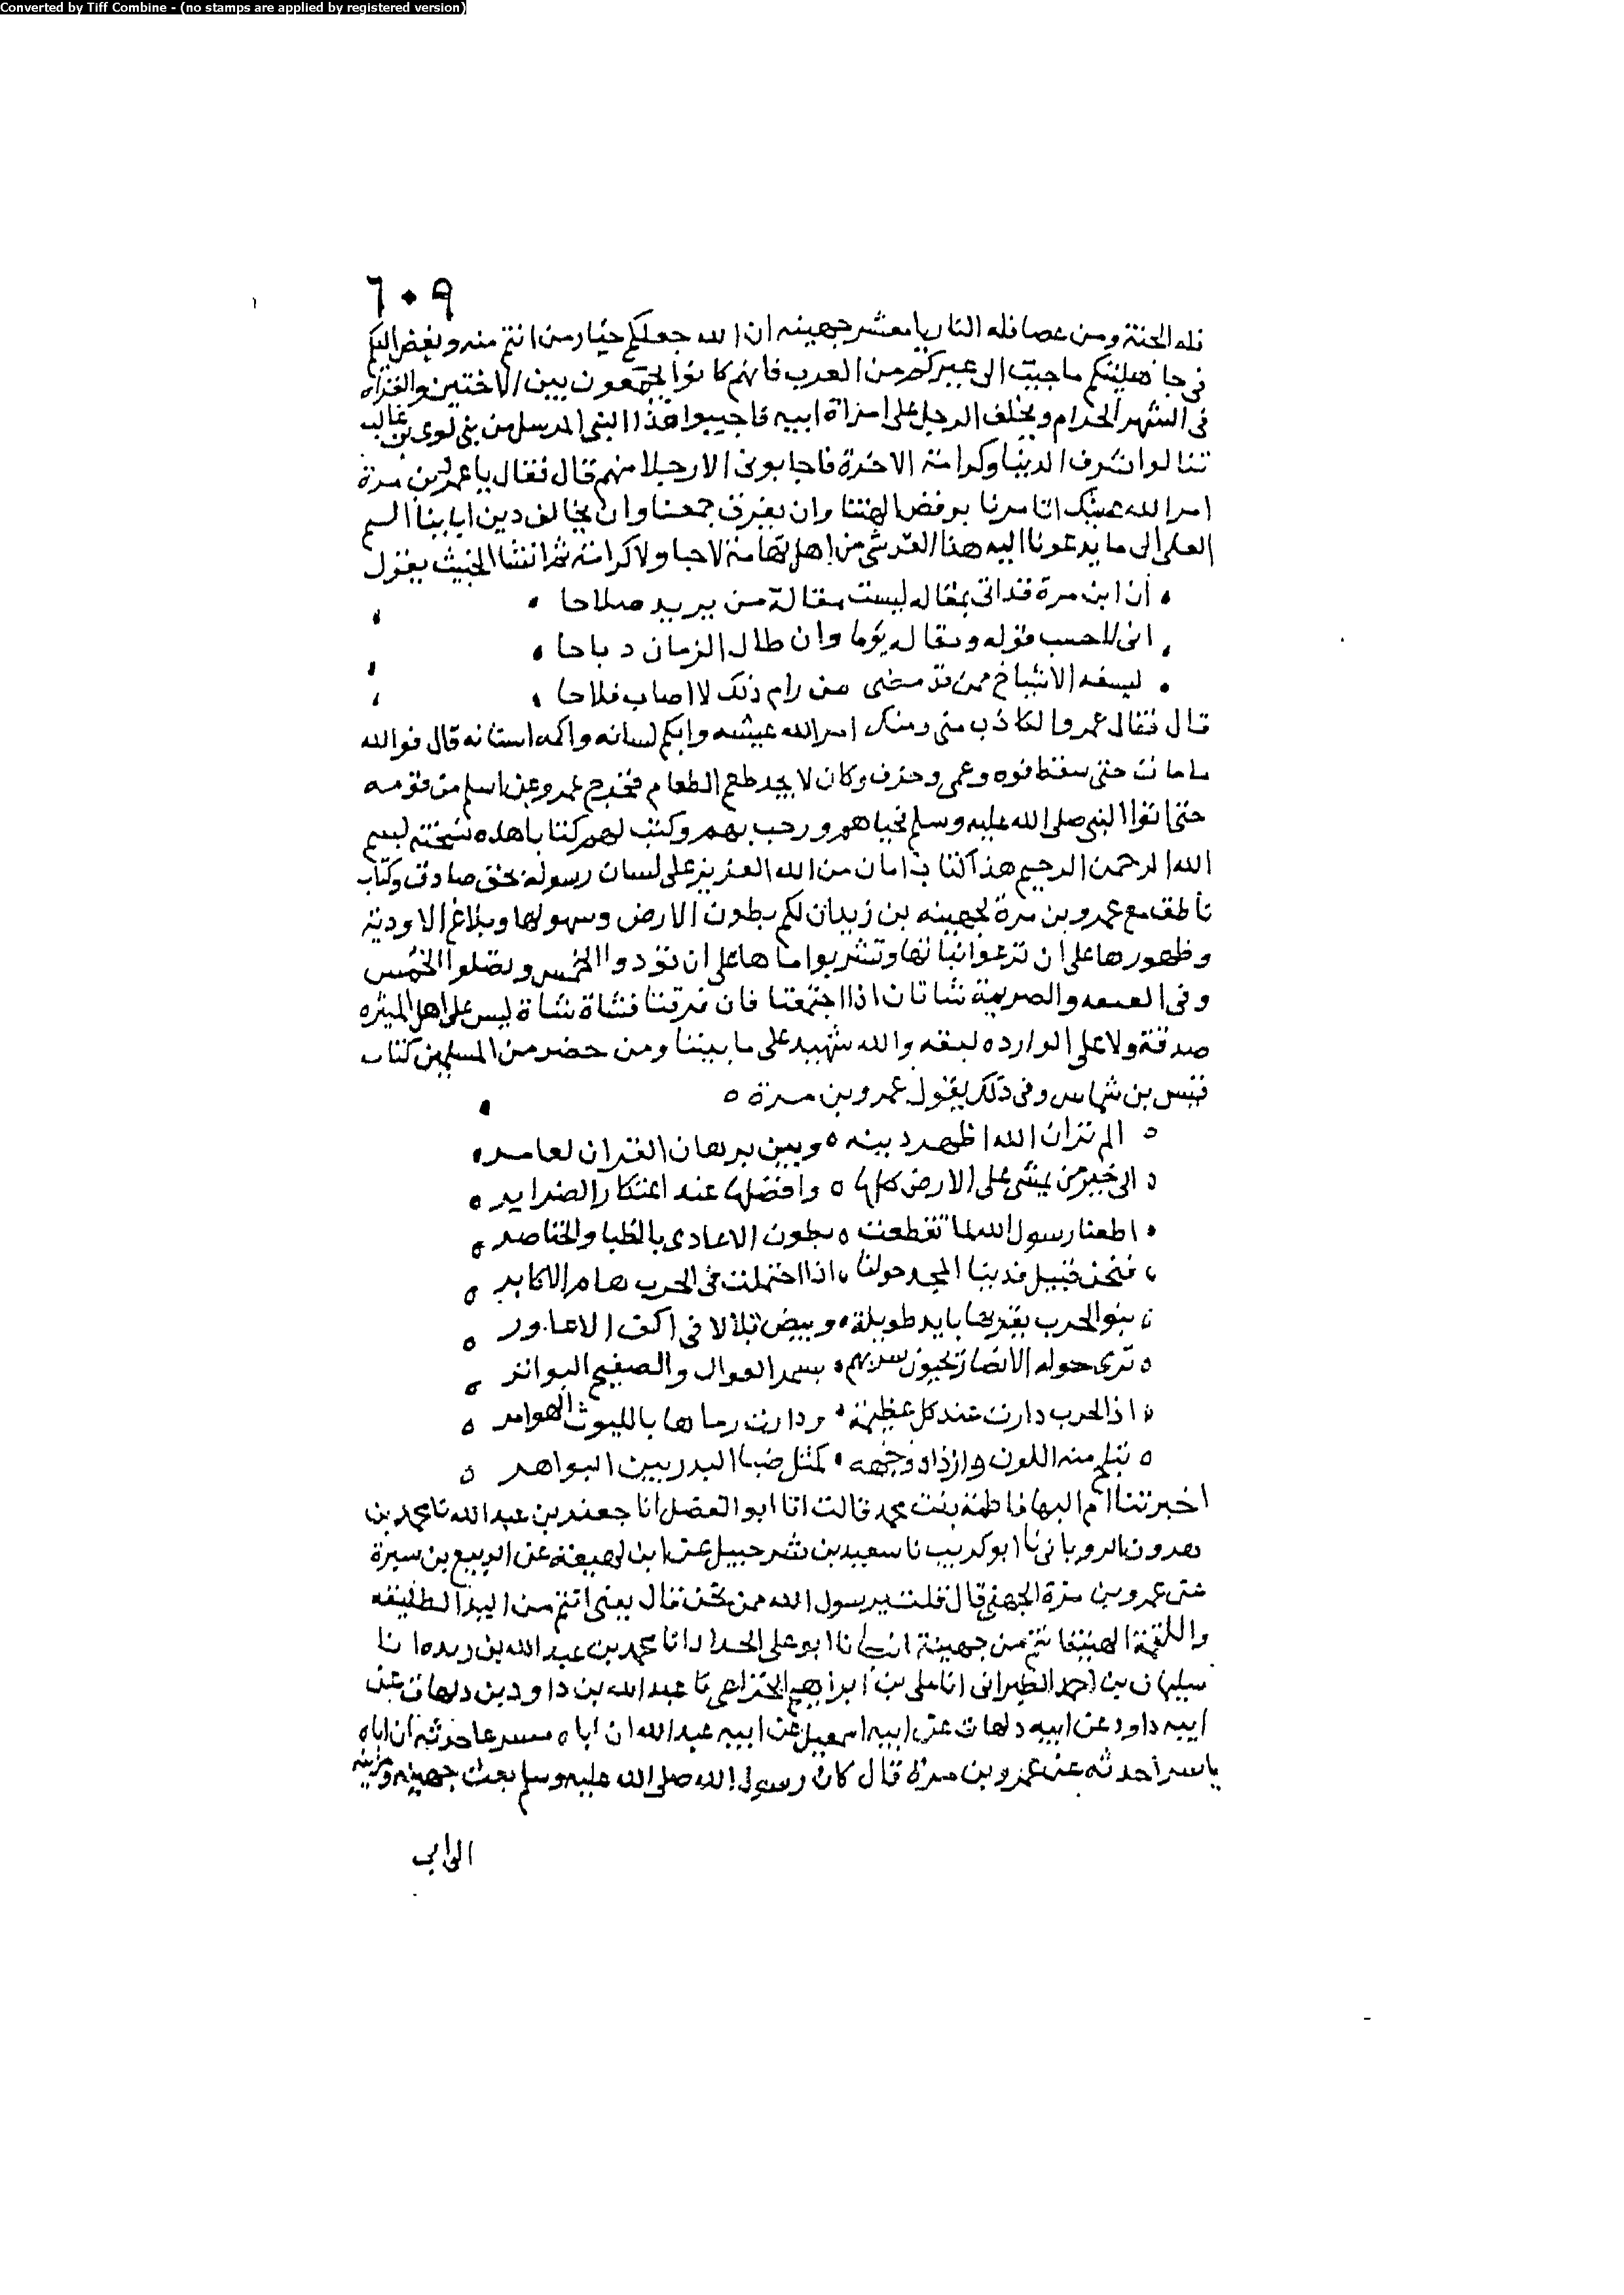 Converted by Tiff Combine - (no stamps are applied by registered version)
٦٠٩
فله الجنة ومن عصا فله النار يا معشر جهينه ان الله جعلكم خيار من انتم منه وبغض اليكم
في جاهليتكم ما حبب الى غيركم من العرب فانهم كانوا يجمعون بين الاختين والغزاه
في الشهر الحرام ويخلف الرجل على امراة ابيه فاجيبوا هذا النبي المرسل من بني لوى بن غالب
تنالوا شرف الدنيا وكرامة الاخرة فاجابوني الا رجلا منهم قال فقال يا عمرو بن مرة
امر الله عيشك اتامرنا برفض الهتنا وان نفرق جمعنا وان نخالف دين ابابنا السم
العلى الى ما يدعونا اليه هذا القرشي من اهل تهامة لا حبا ولا كرامة ثم انشا الخبيث يقول
ان ابن مرة قد اتى بمقاله ليست مقالة من يريد صلاحا
انى للحسب قوله وفعاله يوما وان طال الزمان دباحا
ليسفه الاشياخ ممن قد مضى من رام ذلك لا اصاب فلاحا
قال فقال عمرو الكاذب مني ومنك امر الله عيشه وابكم لسانه واكمه اسنانه قال فوالله
ما مات حتى سقط فوه وعمى وخرف وكان لا يجد طعم الطعام فخرج عمرو بمن اسلم من قومه
حتى اتوا النبي صلى الله عليه وسلم فحياهم ورحب بهم وكتب لهم كتابا هذه نسخته بسم
الله الرحمن الرحيم هذا كتاب امان من الله العزيز على لسان رسوله بحق صادق وكتاب
ناطق مع عمرو بن مرة لجهينه بن زيدان لكم بطون الارض وسهولها وبلاغ الاودية
وظهورها على ان ترعوا نباتها وتشربوا ماها على ان تؤدوا الخمس وتصلوا الخمس
وفي والصريمة شاتان اذا اجتمعتا فان فرقتا فشاة شاة ليس على اهل المثيره
صدقة ولا على الوارده لبقه والله شهيد على ما بيننا ومن حضر من المسلمين كتاب
قيس بن شماس وفي ذلك يقول عمرو بن مرة
الم تر ان الله اظهر دينه وبين برهان القران لعامر
الى خير من يمشي على الارض كلها وافضلها عند اعتكار الضراير
اطعنا رسول الله لما تقطعت بطون الاعادى بالظبا والخناصر
فنحن قبيل قد بنا المجد حولنا اذا اختلت في الحرب هام الاكابر
بنو الحرب نقريها بايد طويلة وبيض تلالا في اكف الاعاور
ترى حوله الانصار يحيون سربهم بسمر العوال والصفيح البواتر
اذا الحرب دارت عند كل عظيمة ودارت رحاها بالليوث الهواصر
تبلج منه اللون وازداد وجهه كمثل ضيا البدر بين البواهر
اخبرتنا ام البها فاطمة بنت محمد قالت انا ابو الفضل انا جعفر بن عبد الله نا محمد بن
هرون الروياني نا ابو كريب نا سعيد بن شرحبيل عن ابن لهيعة عن الربيع بن سبرة
عن عمرو بن مرة الجهني قال قلت يرسول الله ممن نحن فقال يعني انتم من اليد الطليقه
واللقمة الهنيئا نتم من جهينة انبانا ابو على الحداد انا محمد بن عبد الله بن ريده انا
سليمان بن احمد الطبراني انا على بن ابراهيم الخزاعي نا عبد الله بن داود بن دلهاث عن
ابيه داود عن ابيه دلهاث عن ابيه اسمعيل عن ابيه عبد الله ان اباه مسرعا حدثه ان اباه
ياسر احدثه عن عمرو بن مرة قال كان رسول الله صلى الله عليه وسلم بعث جهينه ومزينه
الى ابي